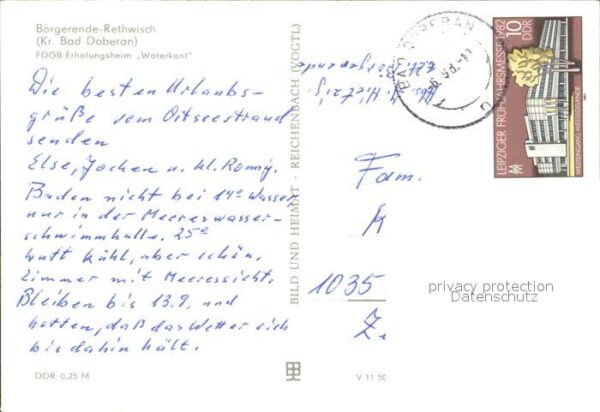 Börgerende-Rethwisch
(Kr. Bad Doberan)
FDGB-Erholungsheim „Waterkant"
Die besten Urlaubs-
grüße vom Ostseestrand
senden
Else, Jochen u. kl. Ronny.
Baden nicht bei 14° Wasser
nur in der Meereswasser-
schwimmhalle. 25°
Luft kühl, aber schön.
Zimmer mit Meeressicht.
Bleiben bis 13.9. und
hoffen, daß das Wetter sich
bis dahin hält.
DDR 0,25 M
BILD UND HEIMAT · REICHENBACH (VOGTL)
V 11 50
Abs. H.
z.Zt. Börgerende
BAD DOBERAN
LEIPZIGER FRÜHJAHRSMESSE 1982
10 DDR
WESTEINGANG MESSEGELÄNDE
Fam.
K
1035
Z.
privacy protection
Datenschutz